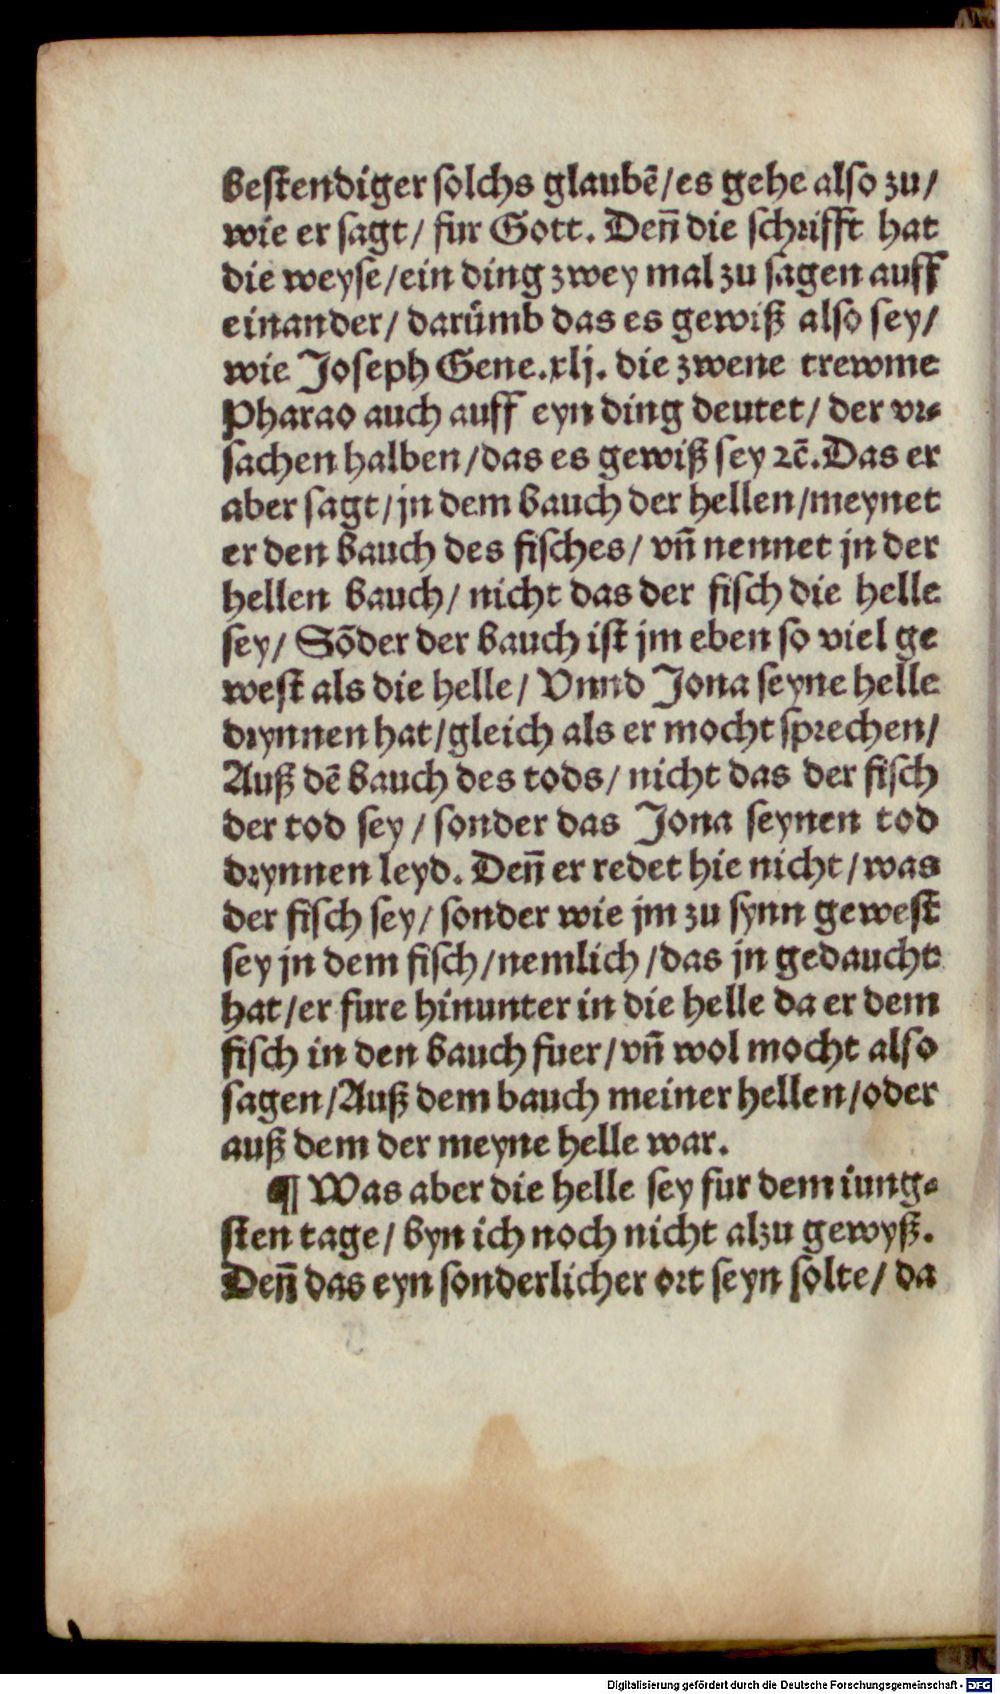 bestendiger solchs glaubē/es gehe also zu/
wie er sagt/ fur Gott. Deñ die schrifft hat
die weyse/ein ding zwey mal zu sagen auff
einander/ darümb das es gewiß also sey/
wie Joseph Gene.xlj. die zwene trewme
Pharao auch auff eyn ding deutet/ der vr⸗
sachen halben/das es gewiß sey ꝛc̄.Das er
aber sagt/jn dem bauch der hellen/meynet
er den bauch des fisches/ vñ nennet jn der
hellen bauch/ nicht das der fisch die helle
sey/ Sōder der bauch ist jm eben so viel ge
west als die helle/ Vnnd Jona seyne helle
drynnen hat/gleich als er mocht sprechen/
Auß dē bauch des tods/ nicht das der fisch
der tod sey/ sonder das Jona seynen tod
drynnen leyd. Deñ er redet hie nicht/was
der fisch sey/ sonder wie jm zu synn gewest
sey jn dem fisch/nemlich/das jn gedaucht
hat/er fure hinunter in die helle da er dem
fisch in den bauch fuer/vñ wol mocht also
sagen/Auß dem bauch meiner hellen/oder
auß dem der meyne helle war.
¶ Was aber die helle sey fur dem iung⸗
sten tage/ byn ich noch nicht alzu gewyß.
Deñ das eyn sonderlicher ort seyn solte/ da
Digitalisierung gefördert durch die Deutsche Forschungsgemeinschaft - DFG